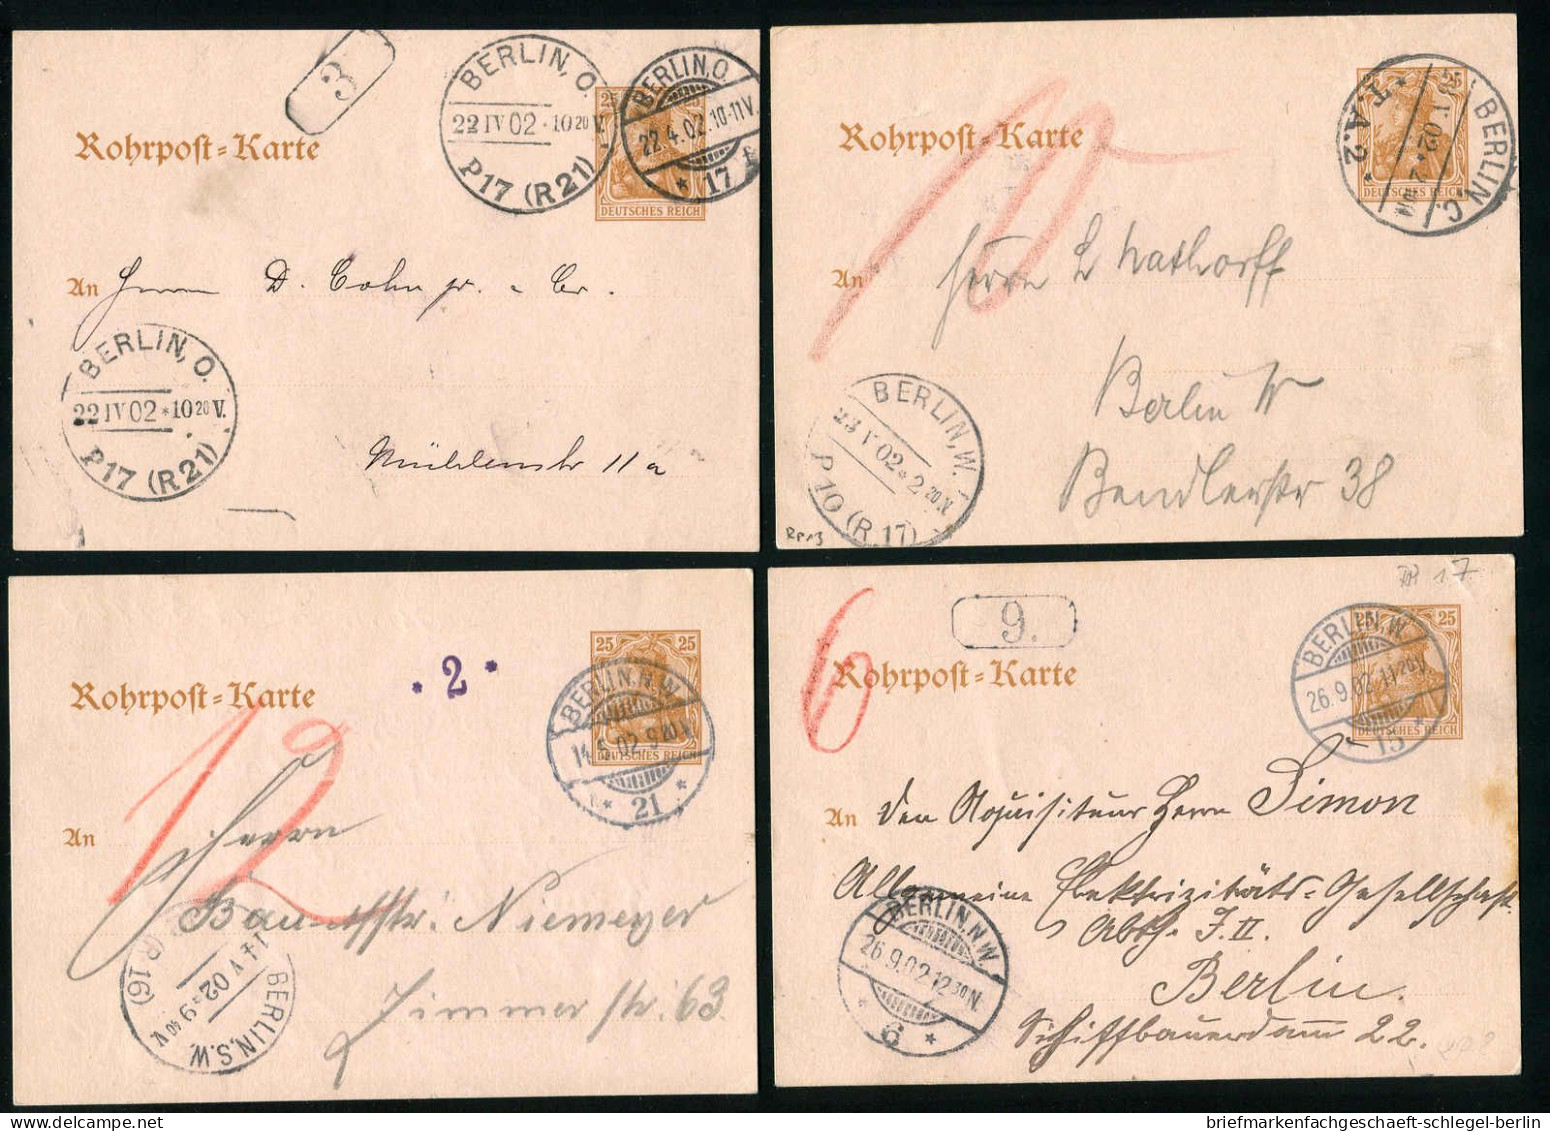 3
BERLIN, O.
22 IV 02 · 10 20 V.
P17 (R 21)
BERLIN, O.
22.4.02.10-11V.
* 17 *
25
DEUTSCHES REICH
Rohrpost=Karte
An Herrn D. Cohn jr. & Co.
BERLIN, O.
22 IV 02 * 10 20 V.
P17 (R 21)
Mühlenstr 11 a
10
Rohrpost=Karte
25
BERLIN C.
* T.A.2 *
An Herrn L Nathorff
Berlin W
Bendlerstr 38
BERLIN, W.
23 V 02 * 2 20 N.
P10 (R.17)
RP13
* 2 *
Rohrpost=Karte
25 25
DEUTSCHES REICH
BERLIN, N.W.
14.5.02. 9 20 V.
* 21 *
12
An Herrn
Niemeyer
Zimmerstr. 63
BERLIN, S.W.
14 V 02 * 9 40 V.
(R 16)
6
9.
RP 17
Rohrpost=Karte
25
DEUTSCHES REICH
BERLIN, N.W.
26.9.02.11 20 V.
15 *
An den Aquisiteur Herrn Simon
Allgemeine Elektrizitäts=Gesellschaft
Abth. J. II.
Berlin.
Schiffbauerdamm 22.
BERLIN, N.W.
26.9.02.12 30 N.
* 6 *
briefmarkenfachgeschaeft-schlegel-berlin